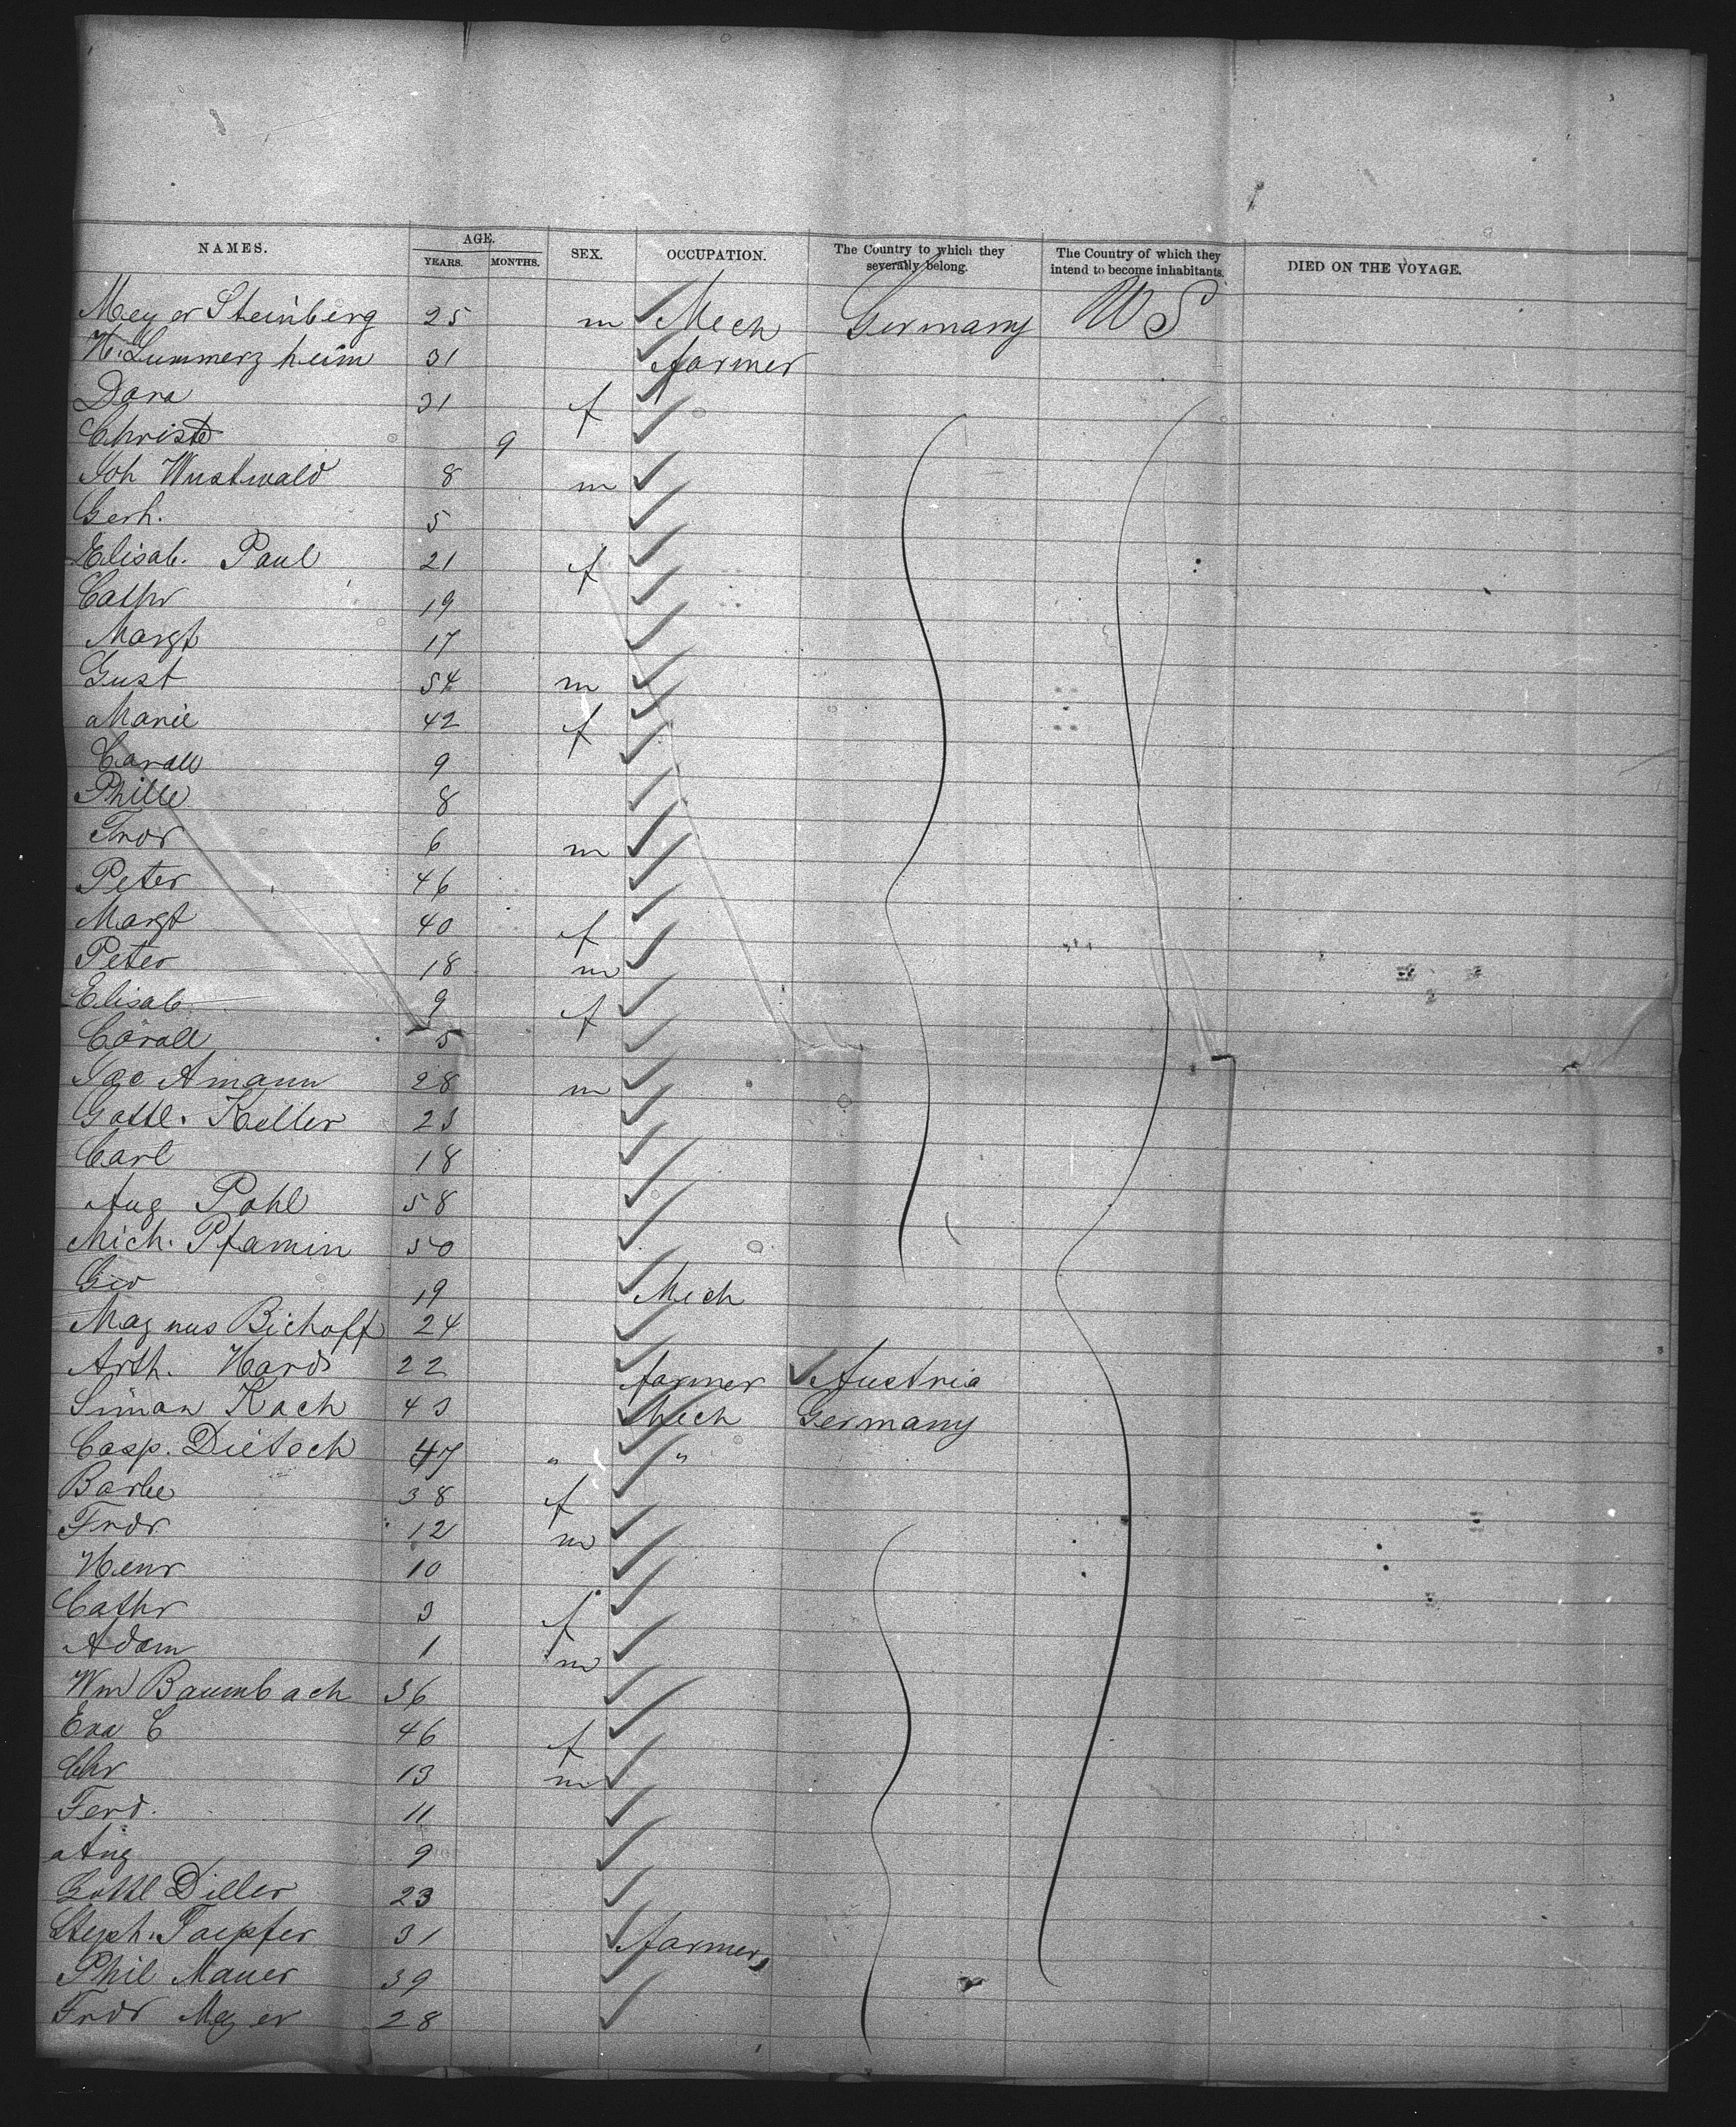 NAMES. AGE. YEARS. MONTHS. SEX. OCCUPATION. The Country to which they severally belong. The Country of which they intend to become inhabitants. DIED ON THE VOYAGE.
Meyer Steinberg 25 m Mech Germany US
H. Lummerzheim 31 farmer
Dora 31 f
Christ 9
Joh Wustwald 8 m
Gerh. 5
Elisab. Paul 21 f
Cathr 19
Margt 17
Gust 54 m
Marie 42 f
Caroll 9
Phille 8
Frdr 6 m
Peter 46
Margt 40 f
Peter 18 m
Elisab 9 f
Caroll 5
Jac Amann 28 m
Gottl. Keller 23
Carl 18
Aug Pohl 58
Mich. Pfamin 50
Geo 19 Mech
Magnus Bichoff 24
Arth. Hards 22 farmer Austria
Simon Koch 43 Mech Germany
Casp. Dietsch 47 " "
Barbe 38 f
Frdr 12 m
Henr 10
Cathr 3 f
Adam 1 m
Wm Baumbach 36
Eva C 46 f
Chr 13 m
Ferd. 11
Aug 9
Gottl Diller 23
Steph. Toepfer 31 farmer
Phil Mauer 39
Frdr Mayer 28